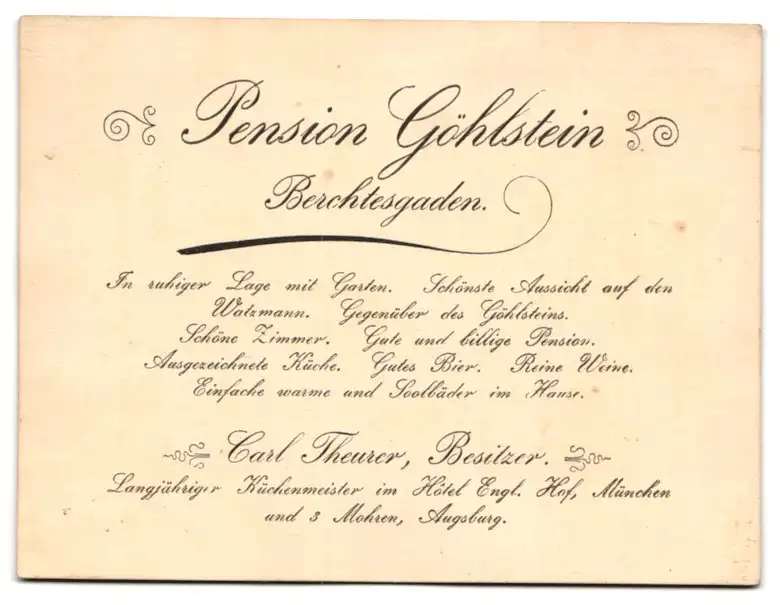 Pension Göhlstein
Berchtesgaden.
In ruhiger Lage mit Garten. Schönste Aussicht auf den
Watzmann. Gegenüber des Göhlsteins.
Schöne Zimmer. Gute und billige Pension.
Ausgezeichnete Küche. Gutes Bier. Reine Weine.
Einfache warme und Soolbäder im Hause.
Carl Theurer, Besitzer.
Langjähriger Küchenmeister im Hôtel Engl. Hof, München
und 3 Mohren, Augsburg.